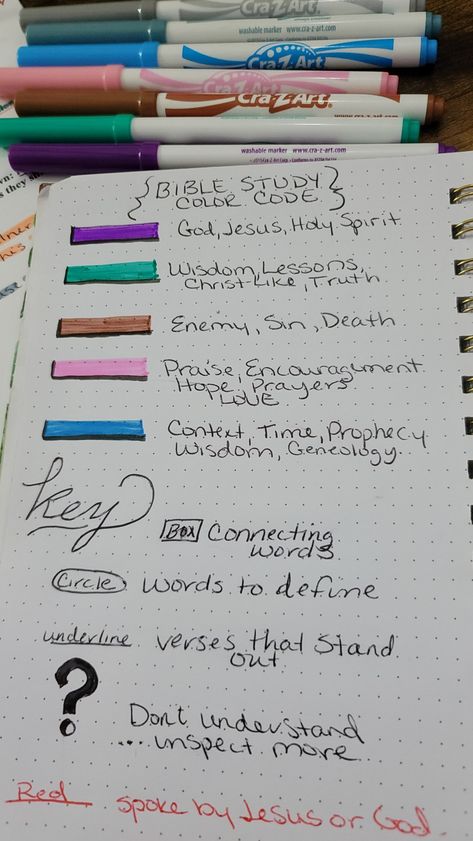 Cra-Z-Art
washable marker www.cra-z-art.com
Cra-Z-Art
Cra-Z-Art
Cra-Z-Art
washable marker www.cra-z-art.com
washable marker www.cra-z-art.com
{BIBLE STUDY
COLOR CODE}
God, Jesus, Holy Spirit
Wisdom, Lessons,
Christ-Like, Truth
Enemy, Sin, Death
Praise, Encouragement
Hope, Prayers
LOVE
Context, Time, Prophecy
Wisdom, Geneology
Key
Box Connecting
words
Circle words to define
underline verses that stand
out
?
Don't understand
.... inspect more
Red spoke by Jesus or God